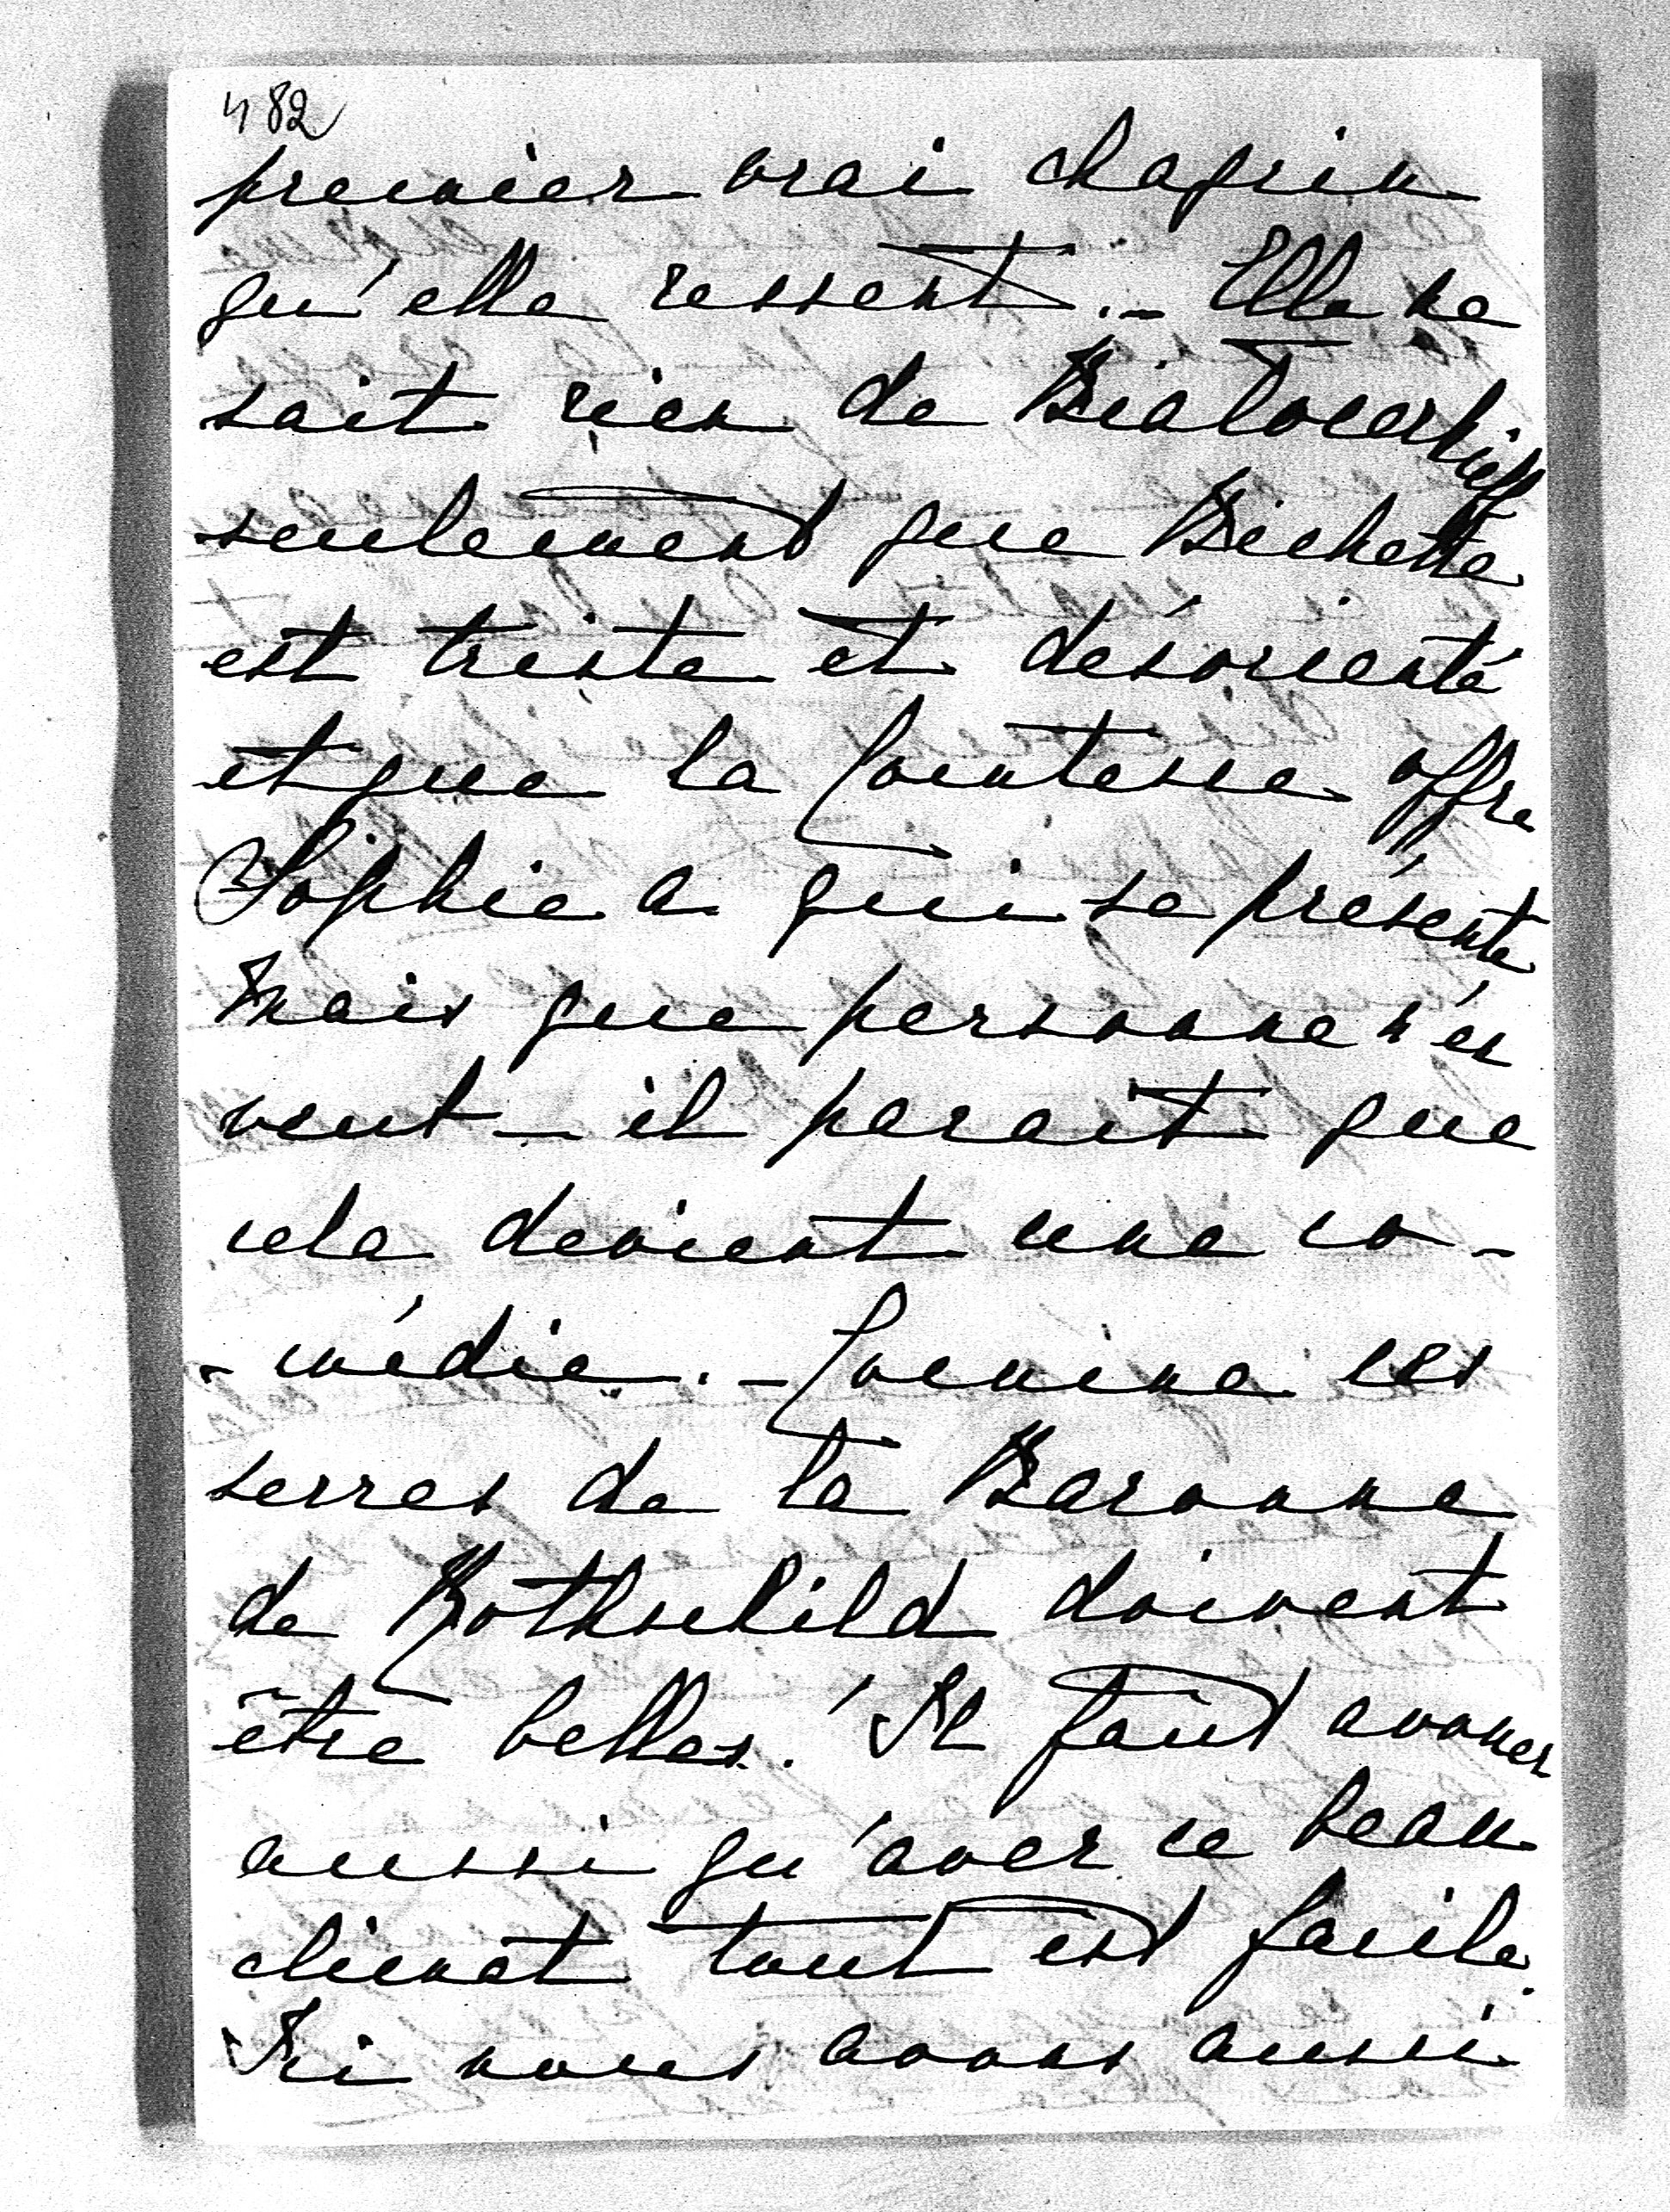 482
premier vrai chagrin
qu'elle ressent. - Elle ne
sait rien de Bialocerkieff
seulement que Bichette
est triste et désorienté
et que la Comtesse offre
Sophie a qui se présente
Mais que personne n'en
veut - il parait que
cela devient une co-
- médie. - Comme ces
serres de la Baronne
de Rothschild doivent
être belles! Il faut avouer
aussi qu'avec ce beau
climat tout est facile.
Ici nous avons aussi